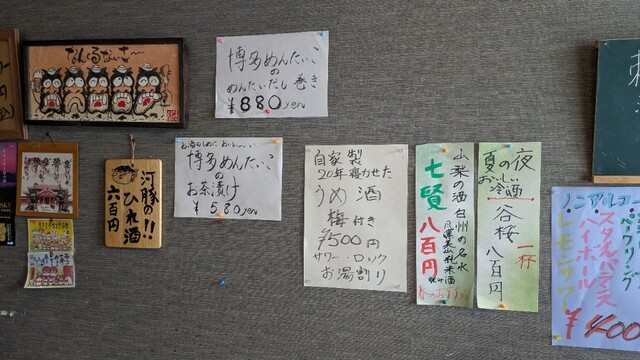 なんくるないさ〜
博多めんたいこ
の
めんたいだし巻き
¥880yen
河豚の!!
ひれ酒
六百円
博多めんたいこ
の
お茶漬け
¥580yen
自家製
20年寝かせた
うめ酒
梅付き
¥500円
サワー・ロック
お湯割り
山梨の酒 白州の名水
七賢
八百円
夏の夜
おいしい
冷酒
谷桜
一杯
八百円
ノンアルコール
スパークリング
ハイボール
レモンサワー
¥400